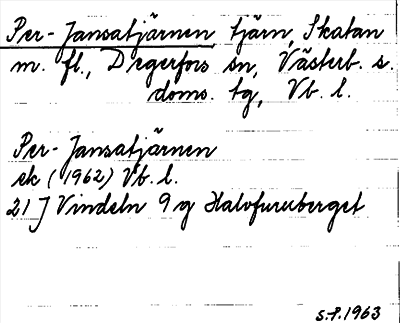 Per-Jansatjärnen, tjärn, Skatan
m. fl., Degerfors sn, Västerb. s.
doms. tg, Vb. l.
Per-Jansatjärnen
ek (1962) Vb. l.
21 J Vindeln 9 g Halvfuruberget
S.f. 1963